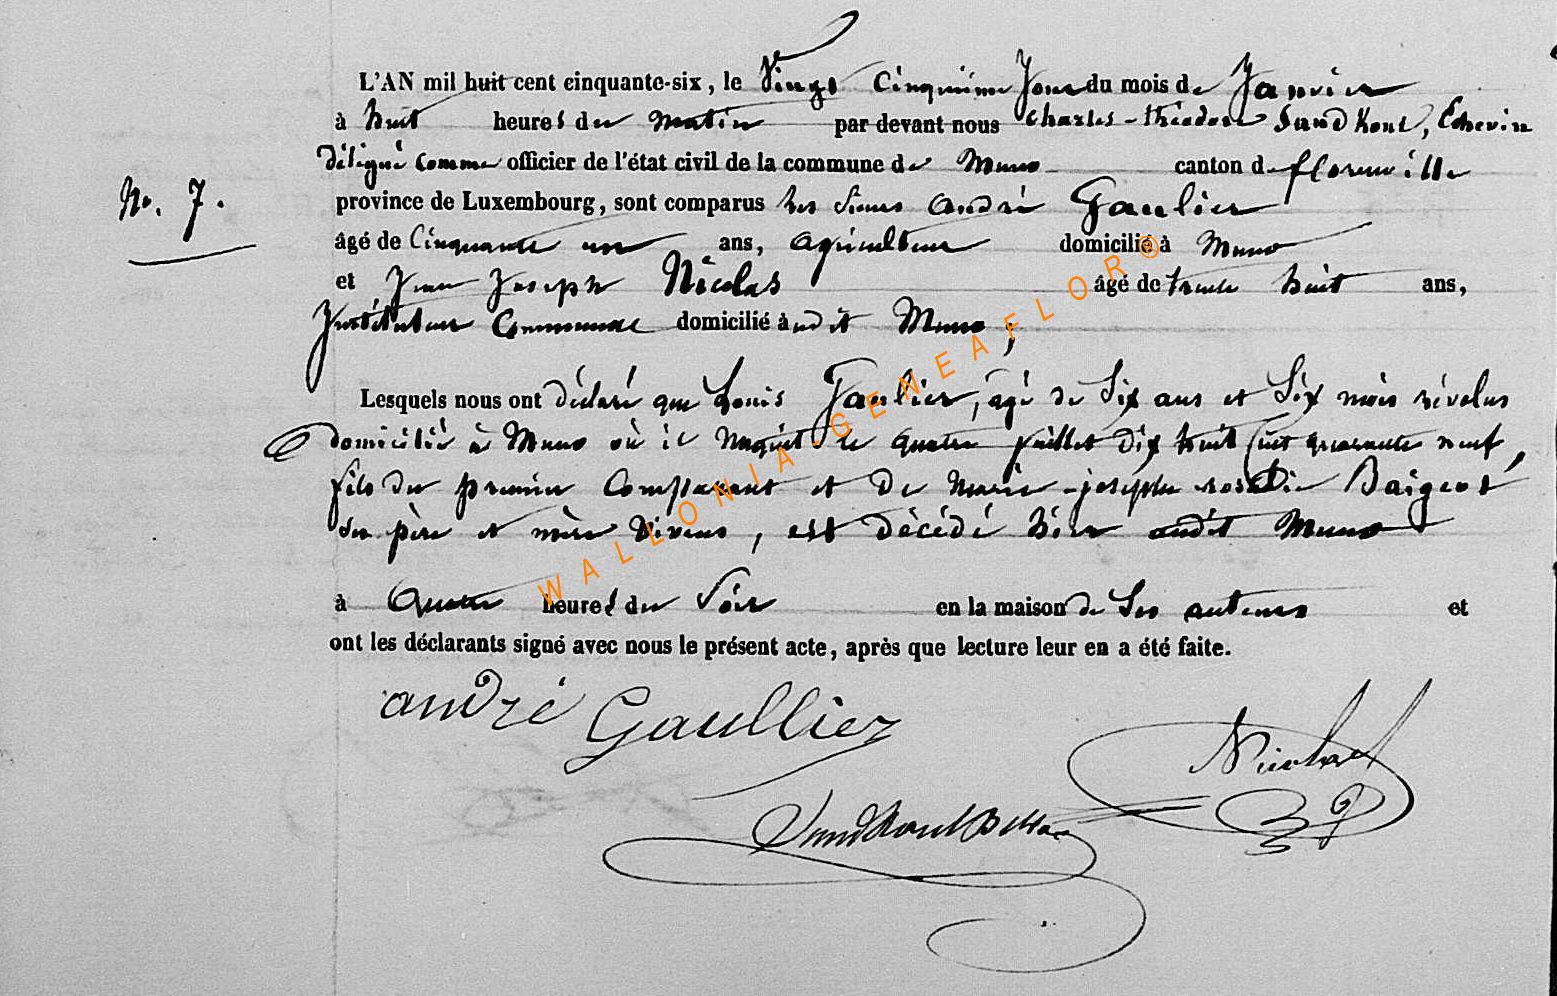 L'AN mil huit cent cinquante-six, le Vingt Cinquième Jour du mois de Janvier
à huit heures du matin par devant nous Charles-théodore Sandkoul, Echevin
délégué comme officier de l'état civil de la commune de Muno canton de florenville
No. 7.
province de Luxembourg, sont comparus les Sieurs andré Gaulier
âgé de Cinquante un ans, agriculteur domicilié à Muno
et Jean Joseph Nicolas âgé de trente huit ans,
Instituteur Communal domicilié audit Muno;
Lesquels nous ont déclaré que Louis Gaulier, âgé de Six ans et Six mois révolus
domicilié à Muno où il naquit le quatre juillet dix huit Cent quarante neuf,
fils du premier Comparant et de marie-josephe rosalie Baigeot
ses père et mère vivans, est décédé hier audit Muno
à Quatre heures du Soir en la maison de Ses auteurs et
ont les déclarants signé avec nous le présent acte, après que lecture leur en a été faite.
andré Gaullier
Nicolas
Sandkoul
WALLONIA-GENEAFLOR®